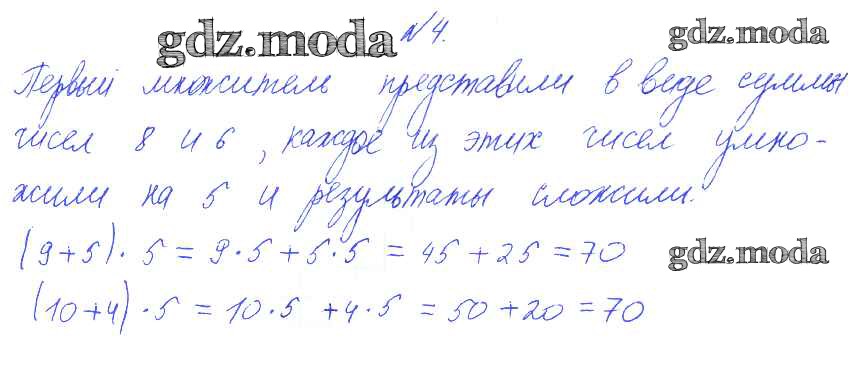 gdz.moda №4. gdz.moda
Первый множитель представили в веде суммы
чисел 8 и 6, каждое из этих чисел умно-
жили на 5 и результаты сложили.
(9+5)·5 = 9·5+5·5 = 45+25=70 gdz.moda
(10+4)·5 = 10·5+4·5 = 50+20=70